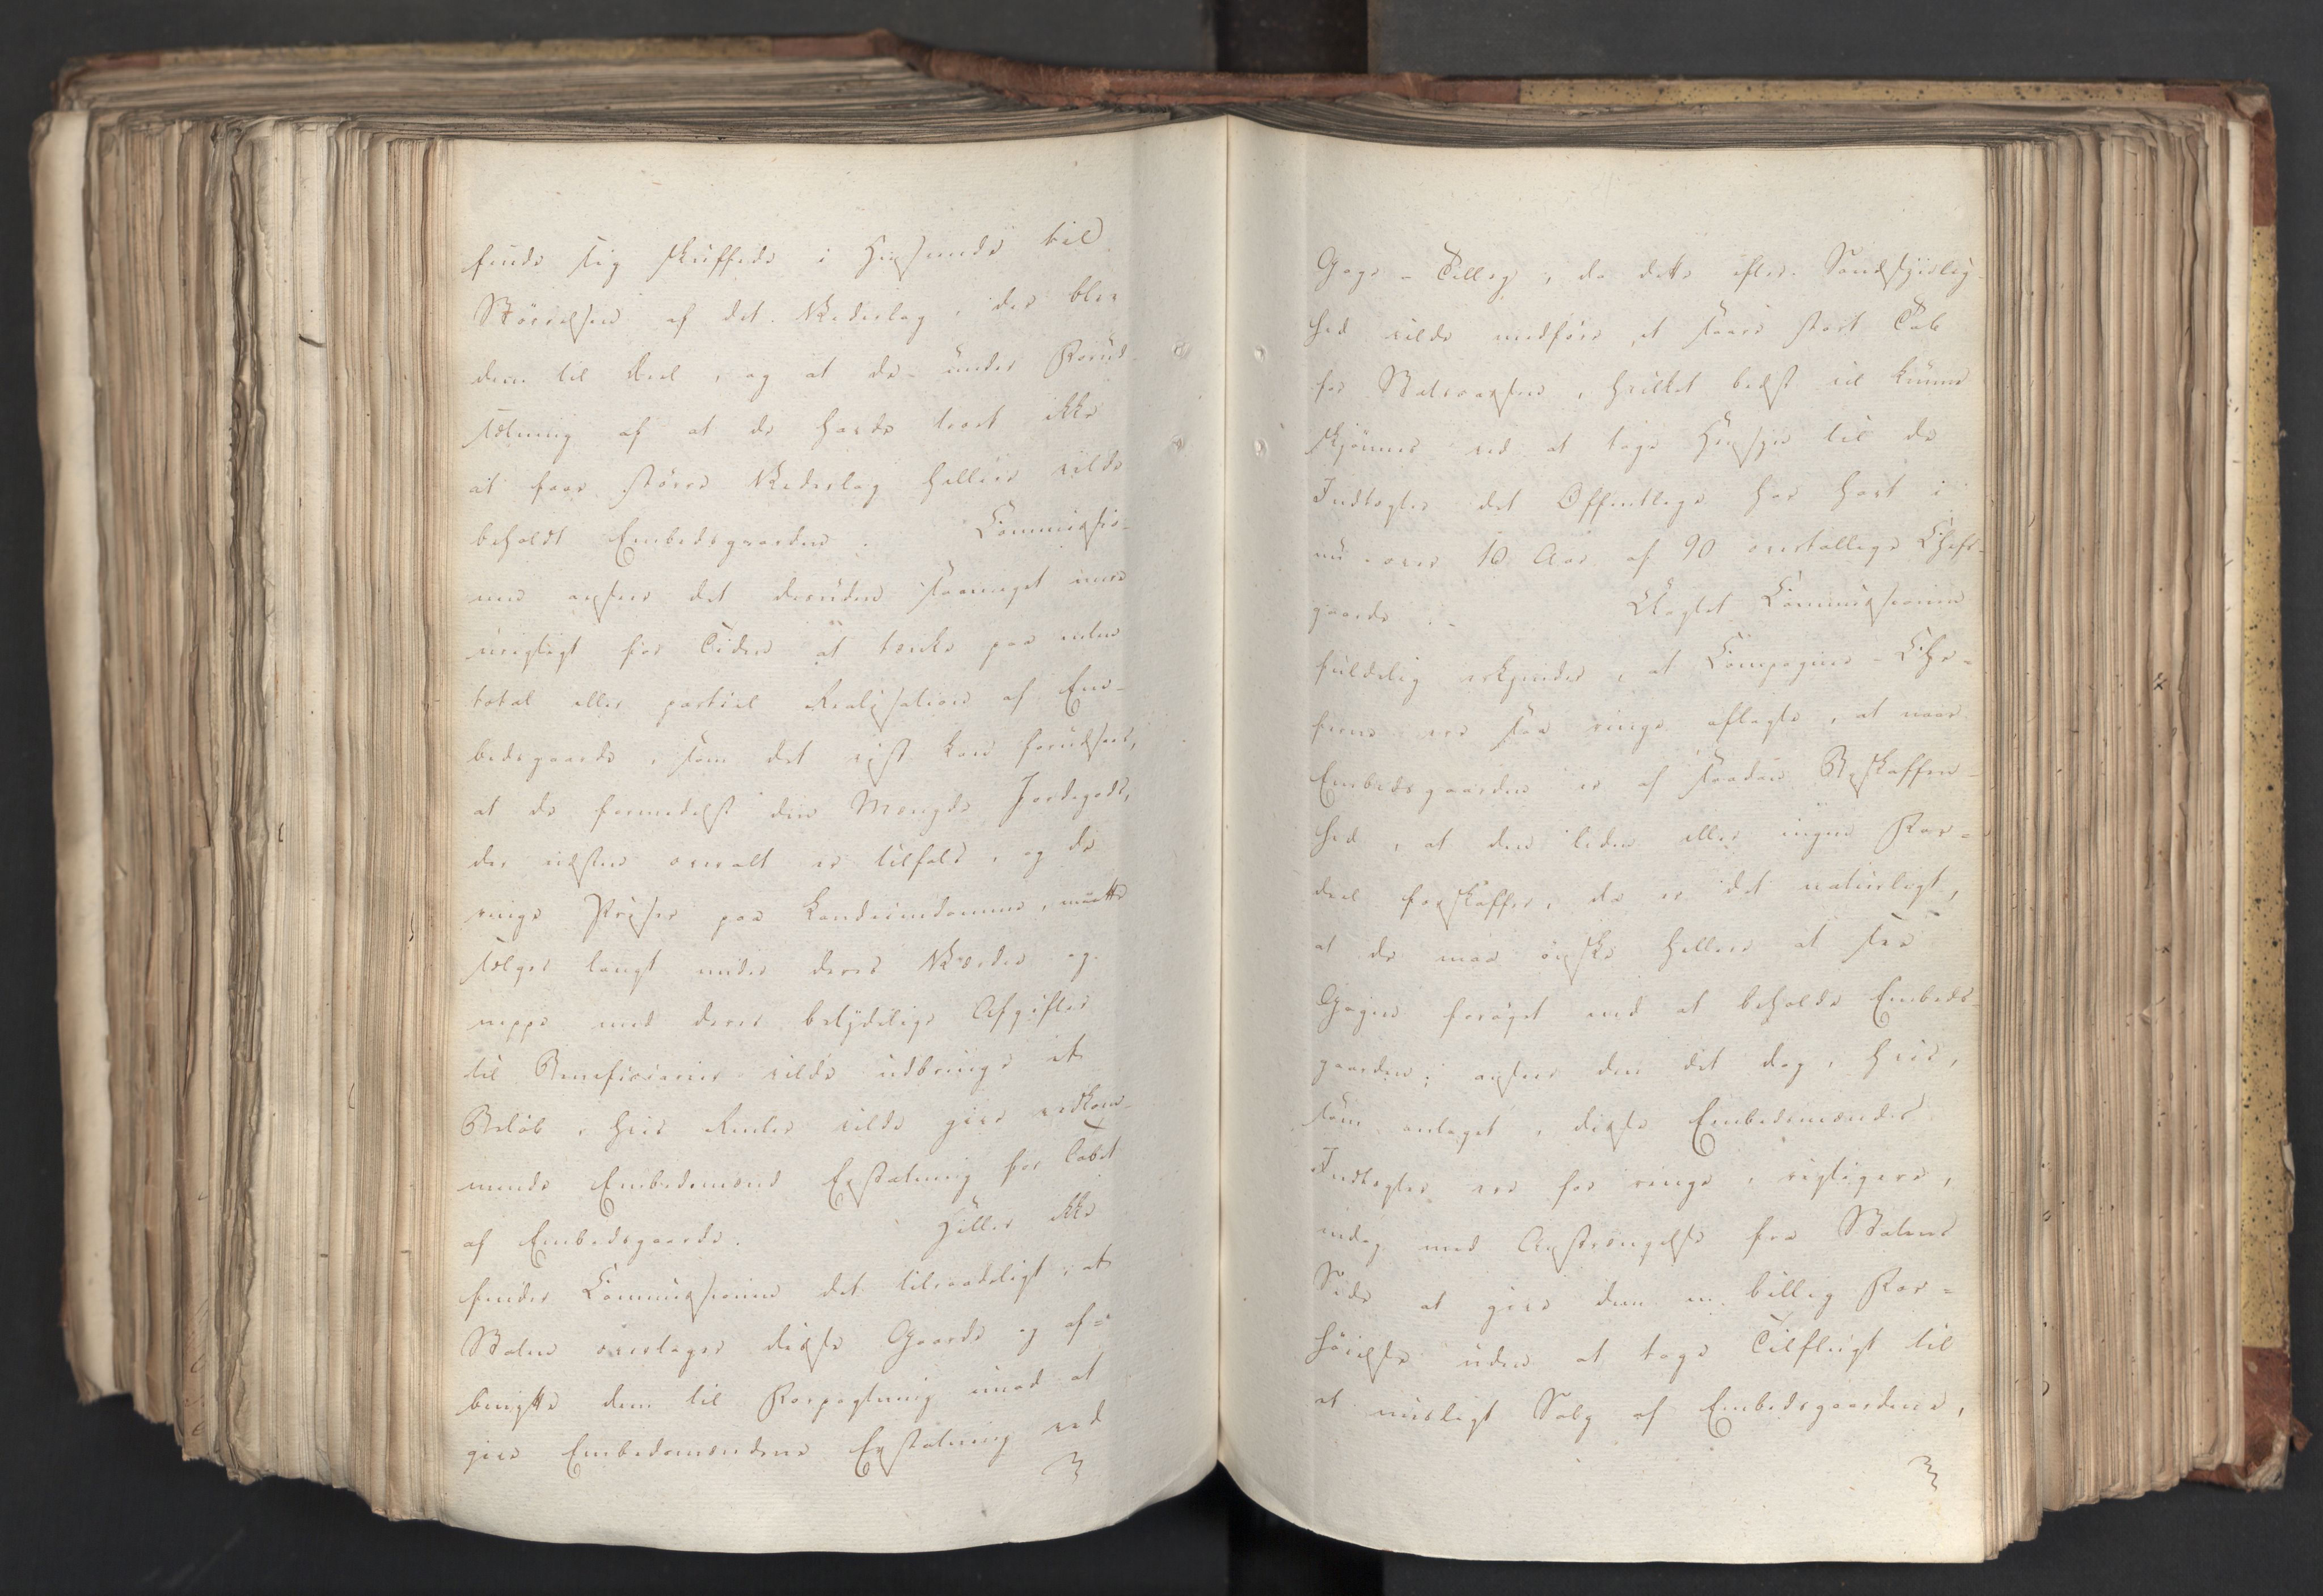 finde sig skuffede i Hensende til
Störrelsen af det Vederlag, der blev
dem til Deel, og at de under Forud-
sætning af at de havde troet ikke
at faae större Vederlag hellere vilde
beholdt Embedsgaarden. Commissio-
nen anseer det desuden saameget mere
urigtigt for Tiden at tænke paa enten
total eller partiel Realisation af Em-
bedsgaarde, som det vist kan forudsees,
at de formedelst den Mængde Jordegods,
der næsten overalt er tilfals, og de
ringe Priser paa Landeiendomme, maatte
sælges langt under deres Værdie og
neppe med deres betydelige Afgifter
til Beneficiarier vilde udbringe et
Belöb, hvis Renter vilde give vedkom-
mende Embedsmænd Erstatning for Tabet
af Embedsgaarde. Heller ikke
finder Commissionen det tilraadeligt, at
Staten overtager disse Gaarde og af-
benytte dem til Forpagtning imod at
give Embedsmændene Erstatning ved
Gage-Tillæg, da dette efter Sandsynlig-
hed vilde medföre et saare stort Tab
for Statscassen, hvilket bedst vil kunne
skjönnes ved at tage Hensyn til de
Indtægter det Offentlige har havt i
nu over 10 Aar af 90 overtallige Chefs-
gaarde. Uagtet Commissionen
fuldelig erkjender, at Compagnie-Che-
ferne ere saa ringe aflagte, at naar
Embedsgaarden er af saadan Beskaffen-
hed, at den liden eller ingen For-
deel forskaffer, da er det naturligt,
at de maa önske hellere at see
Gagen foröget end at beholde Embeds-
gaarden; anseer den det dog, hvis,
som antaget, disse Embedsmænders
Indtægter ere for ringe, rigtigere,
endog med Anstrængelse fra Statens
Side at give dem en billig For-
höielse uden at tage Tilflugt til
et misligt Salg af Embedsgaardene,